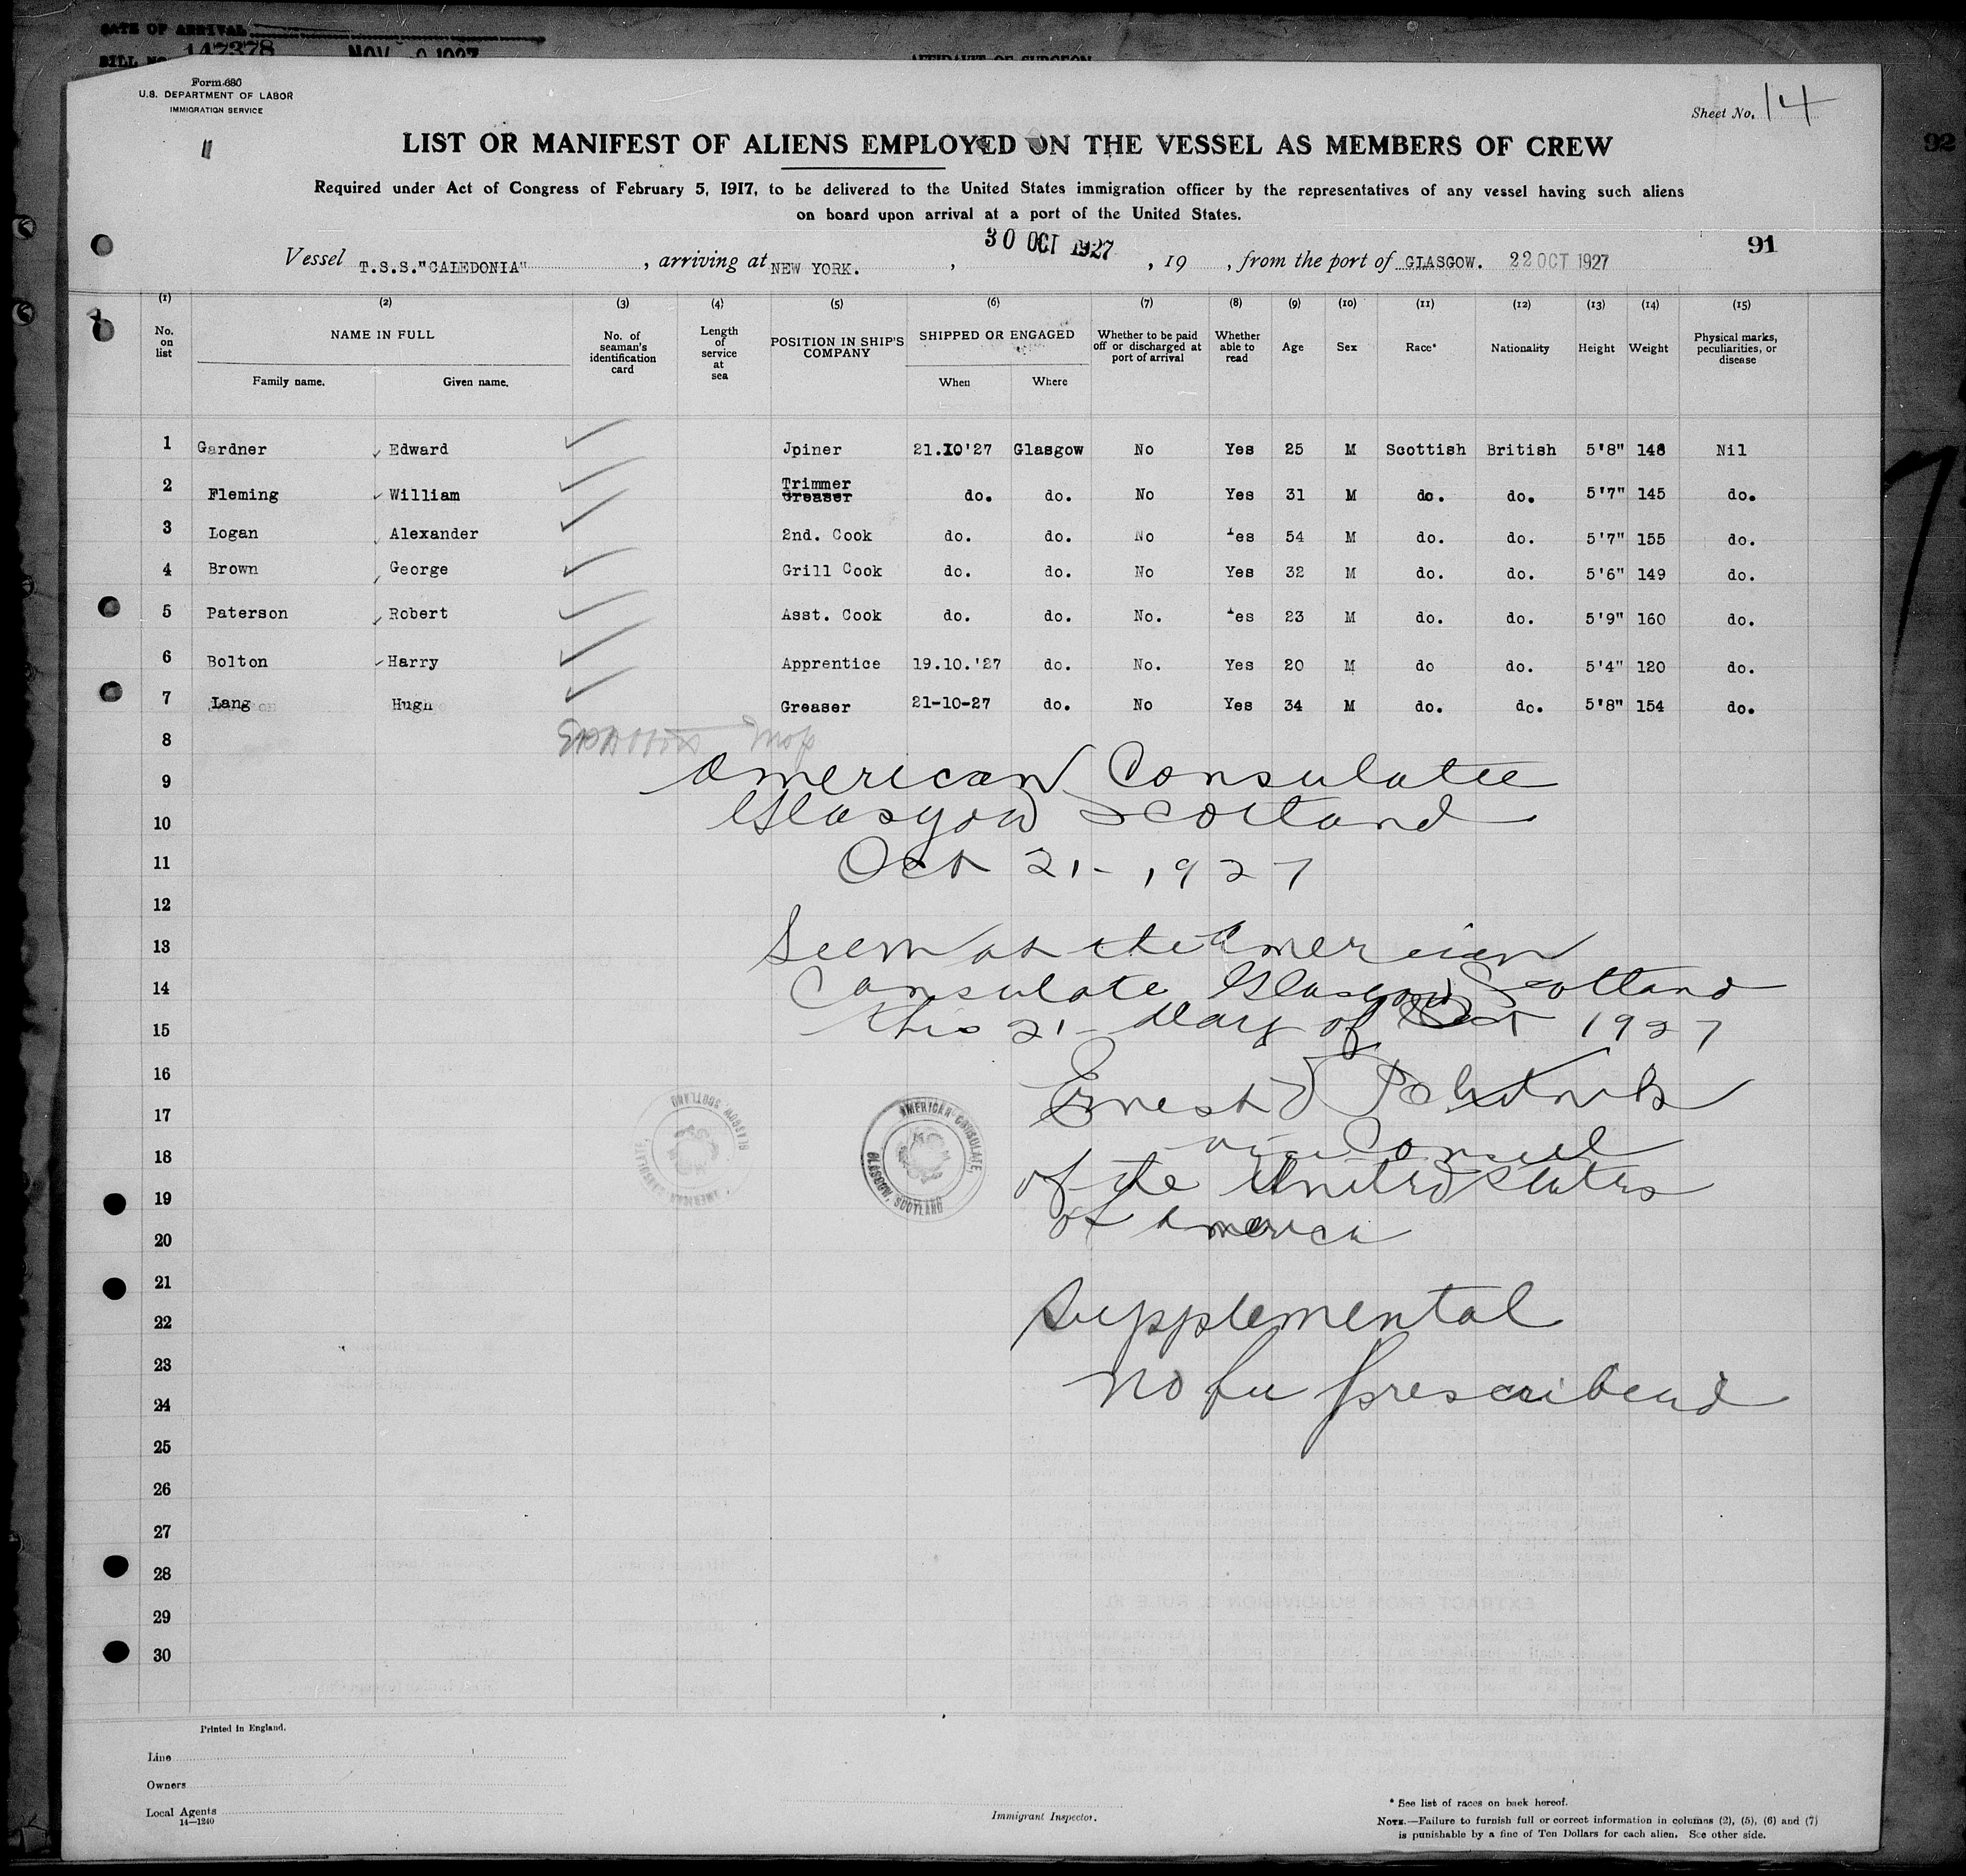 DATE OF ARRIVAL
BILL NO. 147378 NOV 1927 AFFIDAVIT OF SURGEON
Form 680
U.S. DEPARTMENT OF LABOR
IMMIGRATION SERVICE
Sheet No. 14
11
LIST OR MANIFEST OF ALIENS EMPLOYED ON THE VESSEL AS MEMBERS OF CREW
92
Required under Act of Congress of February 5, 1917, to be delivered to the United States immigration officer by the representatives of any vessel having such aliens
on board upon arrival at a port of the United States.
91
Vessel T.S.S."CALEDONIA", arriving at NEW YORK., 30 OCT 1927, 19 , from the port of GLASGOW. 22 OCT 1927
(1) (2) (3) (4) (5) (6) (7) (8) (9) (10) (11) (12) (13) (14) (15)
No. on list NAME IN FULL Family name. Given name. No. of seaman's identification card Length of service at sea POSITION IN SHIP'S COMPANY SHIPPED OR ENGAGED When Where Whether to be paid off or discharged at port of arrival Whether able to read Age Sex Race* Nationality Height Weight Physical marks, peculiarities, or disease
1 Gardner Edward Jpiner 21.10'27 Glasgow No Yes 25 M Scottish British 5'8" 148 Nil
2 Fleming William Trimmer Greaser do. do. No Yes 31 M do. do. 5'7" 145 do.
3 Logan Alexander 2nd. Cook do. do. No Yes 54 M do. do. 5'7" 155 do.
4 Brown George Grill Cook do. do. No Yes 32 M do. do. 5'6" 149 do.
5 Paterson Robert Asst. Cook do. do. No. Yes 23 M do. do. 5'9" 160 do.
6 Bolton Harry Apprentice 19.10.'27 do. No. Yes 20 M do do. 5'4" 120 do.
7 Lang Hugh Greaser 21-10-27 do. No Yes 34 M do. do. 5'8" 154 do.
8
9 American Consulate
10 Glasgow Scotland
11 Oct 21 - 1927
12
13 Seen at the American
14 Consulate Glasgow Scotland
15 this 21 - day of Oct 1927
16
17 Ernest
18 vice Consul
19 of the United States
20 of America
AMERICAN CONSULATE, GLASGOW, SCOTLAND
AMERICAN CONSULATE, GLASGOW, SCOTLAND
21
22 Supplemental
23
24 No fee prescribed
25
26
27
28
29
30
Printed in England.
Line
Owners
Local Agents
14—1240
Immigrant Inspector.
* See list of races on back hereof.
NOTE.—Failure to furnish full or correct information in columns (2), (5), (6) and (7)
is punishable by a fine of Ten Dollars for each alien. See other side.